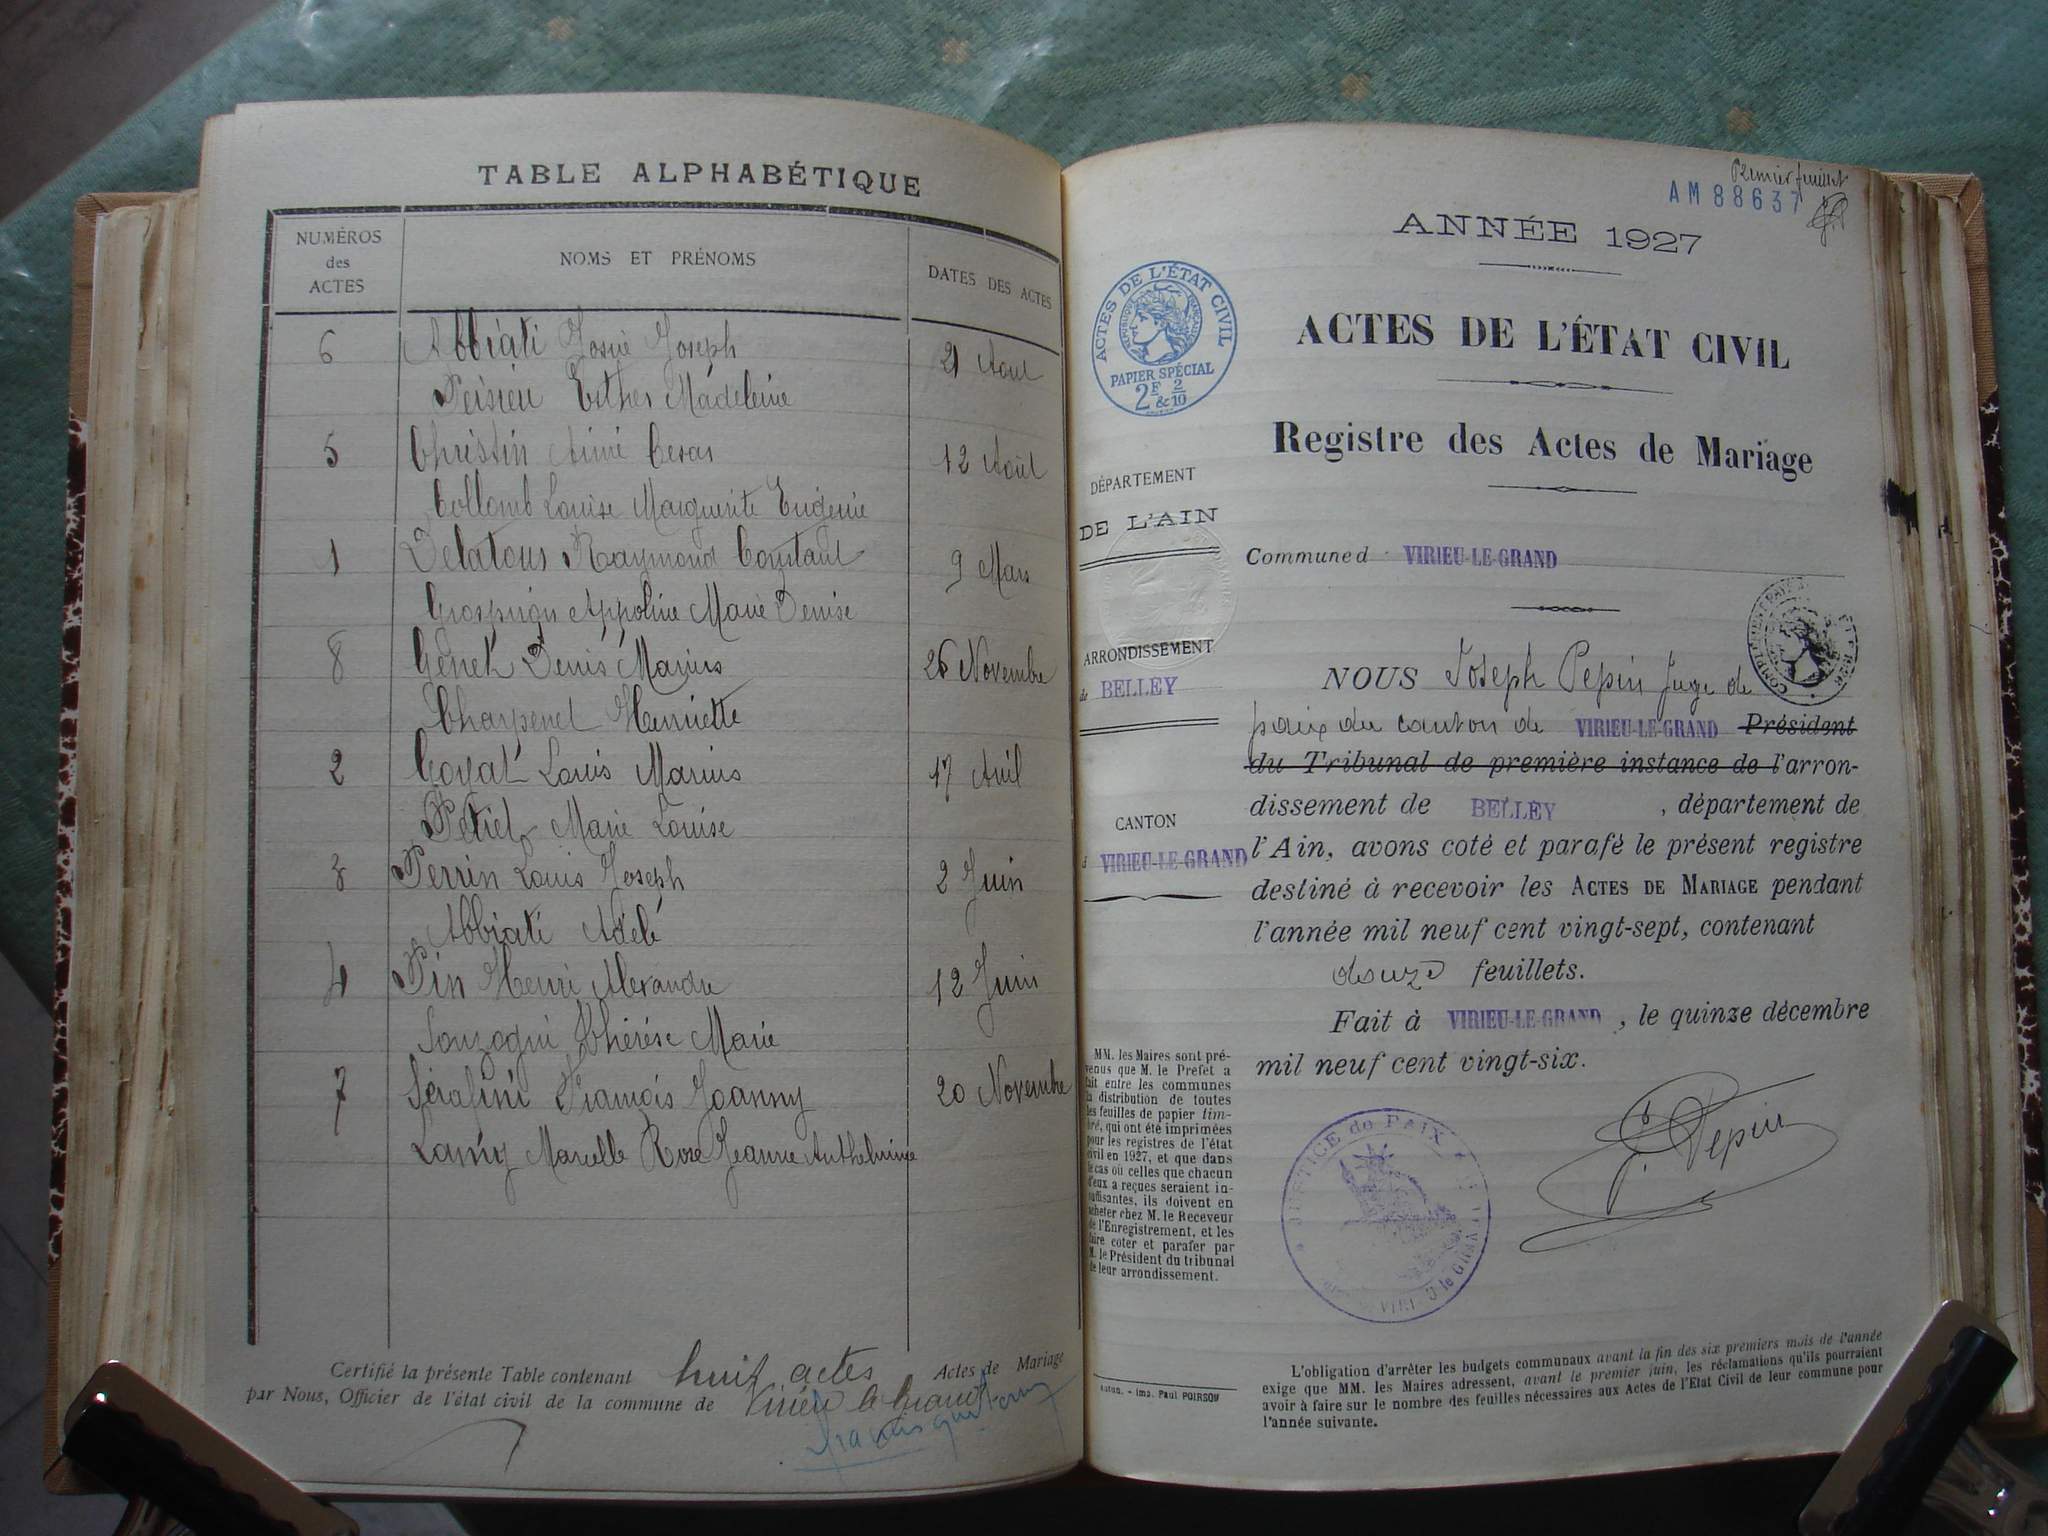 TABLE ALPHABÉTIQUE
NUMÉROS
des
ACTES
NOMS ET PRÉNOMS
DATES DES ACTES
6 Abbiati Josué Joseph 21 Août
Peisieu Esther Madeleine
5 Christin Aimé César 12 Août
Collomb Louise Marguerite Eugénie
1 Delatour Raymond Constant 9 Mars
Appoline Marie Denise
8 Denis Marius 26 Novembre
Charpenel Henriette
2 Goyat Louis Marius 17 Avril
Marie Louise
3 Perrin Louis Joseph 2 Juin
Abbiati Adèle
4 Pin Henri Alexandre 12 Juin
Thérèse Marie
7 Sérafini François Joanny 20 Novembre
Lamy Marcelle Rose Jeanne Anthelmine
Certifié la présente Table contenant huit actes Actes de Mariage
par Nous, Officier de l'état civil de la commune de Virieu le Grand
Premier feuillet
AM 88637
ANNÉE 1927
ACTES DE L'ÉTAT CIVIL
RÉPUBLIQUE FRANÇAISE
PAPIER SPÉCIAL
2F & 2/10
ACTES DE L'ÉTAT CIVIL
Registre des Actes de Mariage
DÉPARTEMENT
DE L'AIN
Commune d VIRIEU-LE-GRAND
ARRONDISSEMENT
de BELLEY
CANTON
VIRIEU-LE-GRAND
NOUS Joseph Pepin Juge de
paix du canton de VIRIEU-LE-GRAND Président
du Tribunal de première instance de l'arron-
dissement de BELLEY , département de
l'Ain, avons coté et parafé le présent registre
destiné à recevoir les ACTES DE MARIAGE pendant
l'année mil neuf cent vingt-sept, contenant
douze feuillets.
Fait à VIRIEU-LE-GRAND , le quinze décembre
mil neuf cent vingt-six.
J. Pepin
JUSTICE de PAIX
MM. les Maires sont pré-
venus que M. le Préfet a
fait entre les communes
la distribution de toutes
les feuilles de papier tim-
bré, qui ont été imprimées
pour les registres de l'état
civil en 1927, et que dans
le cas où celles que chacun
d'eux a reçues seraient in-
suffisantes, ils doivent en
acheter chez M. le Receveur
de l'Enregistrement, et les
faire coter et parafer par
M. le Président du tribunal
de leur arrondissement.
imp. Paul POIRSON
L'obligation d'arrêter les budgets communaux avant la fin des six premiers mois de l'année
exige que MM. les Maires adressent, avant le premier juin, les réclamations qu'ils pourraient
avoir à faire sur le nombre des feuilles nécessaires aux Actes de l'Etat Civil de leur commune pour
l'année suivante.